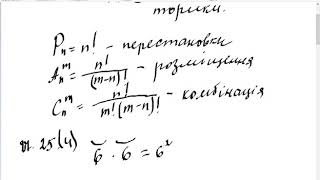 торики.
Pₙ = n! - перестановки
Aₙᵐ = n!/(m-n)! - розміщення
Cₙᵐ = n!/m!(m-n)! - комбінація
25(4) 6 · 6 = 6²